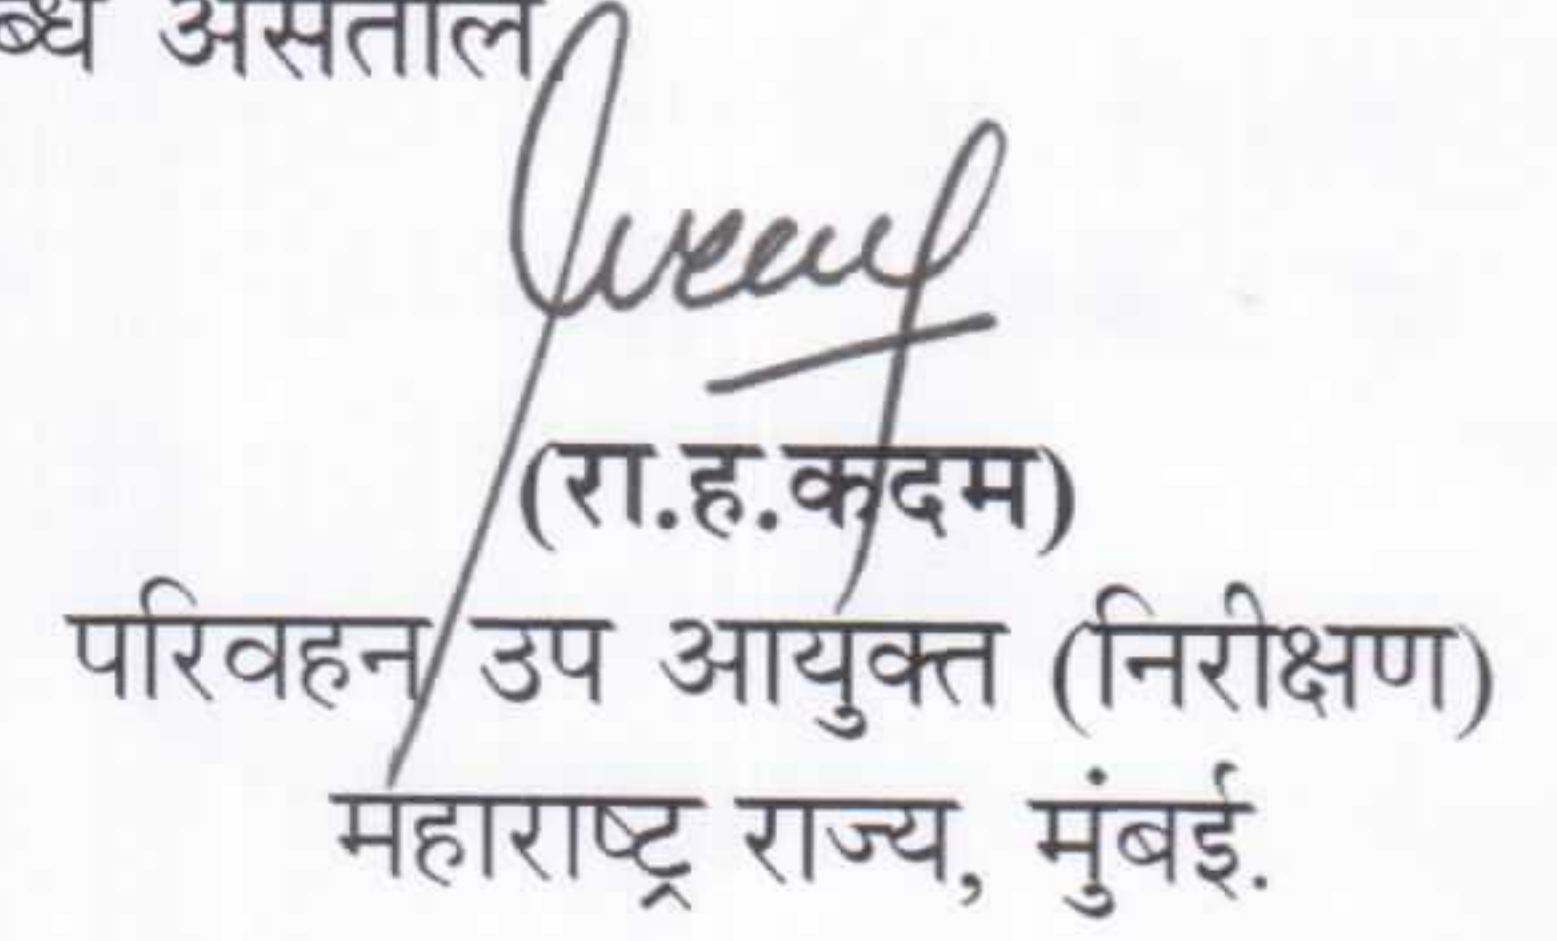 असतील
(रा.ह.कदम)
परिवहन उप आयुक्त (निरीक्षण)
महाराष्ट्र राज्य, मुंबई.